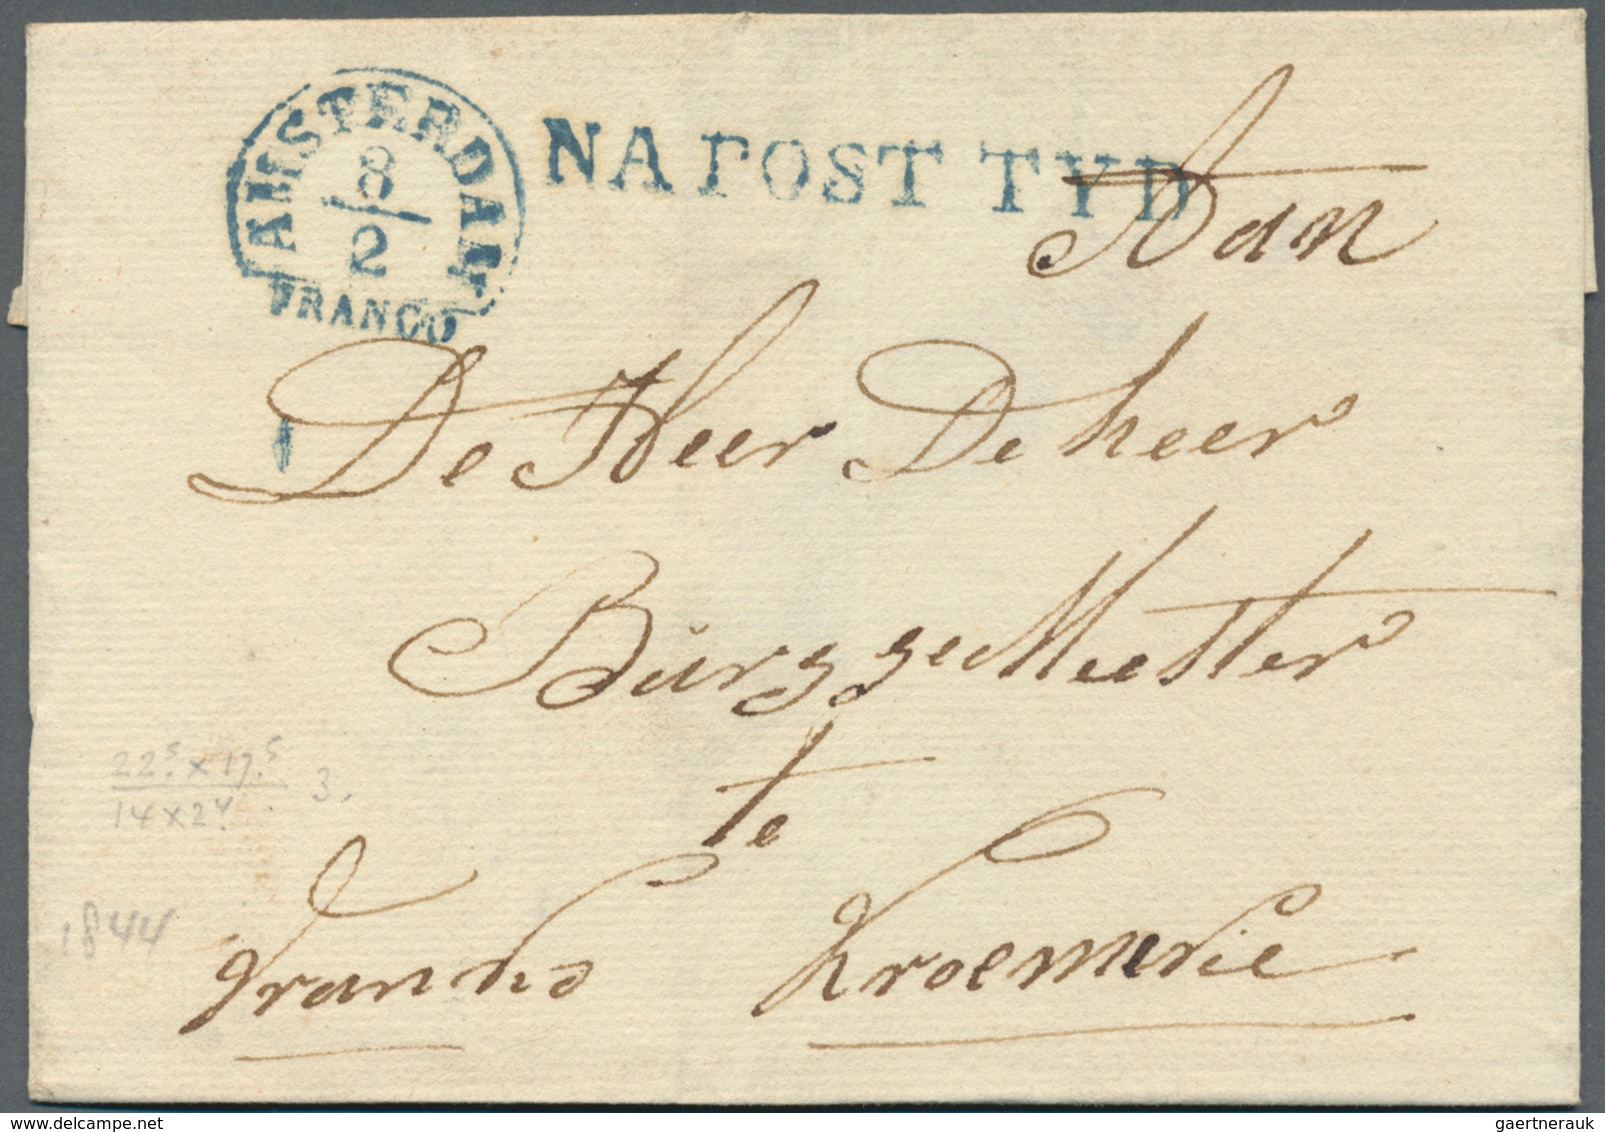 AMSTERDAM
8/2
FRANCO
NA POST TYD
Aan
De Heer De heer
Burggemeester
te
Kroemenie
franko
22.5 x 17.5
14 x 24
3.
1844
www.delcampe.net
gaertnerauk